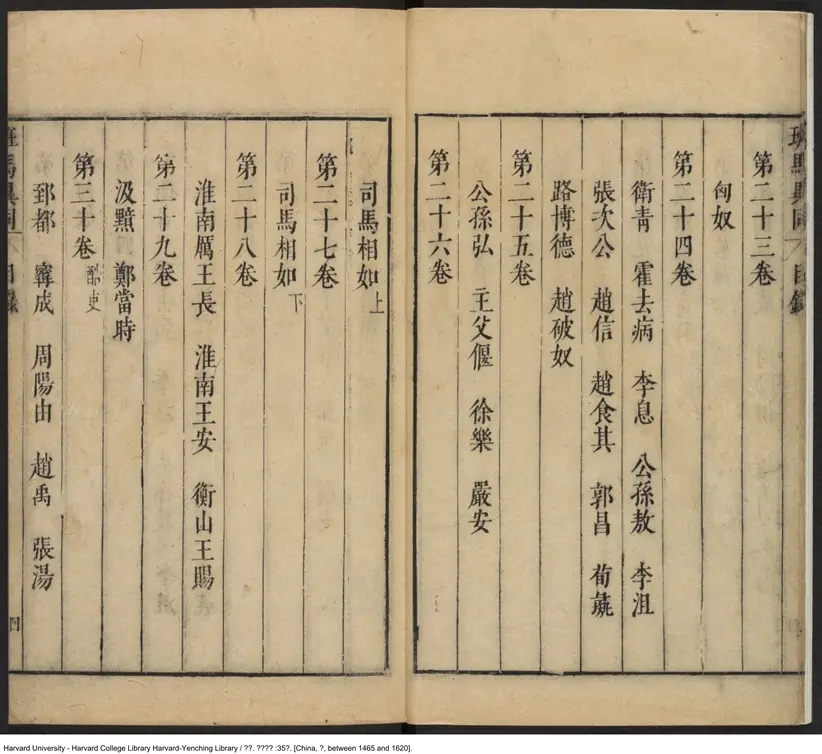 班馬異同 目錄
第二十三卷
匈奴
第二十四卷
衛青 霍去病 李息 公孫敖 李沮
張次公 趙信 趙食其 郭昌 荀彘
路博德 趙破奴
第二十五卷
公孫弘 主父偃 徐樂 嚴安
第二十六卷
司馬相如上
第二十七卷
司馬相如下
第二十八卷
淮南厲王長 淮南王安 衡山王賜
第二十九卷
汲黯 鄭當時
第三十卷 酷吏
郅都 寗成 周陽由 趙禹 張湯
班馬異同 目錄 四
Harvard University - Harvard College Library Harvard-Yenching Library / ??. ???? :35?. [China, ?, between 1465 and 1620].